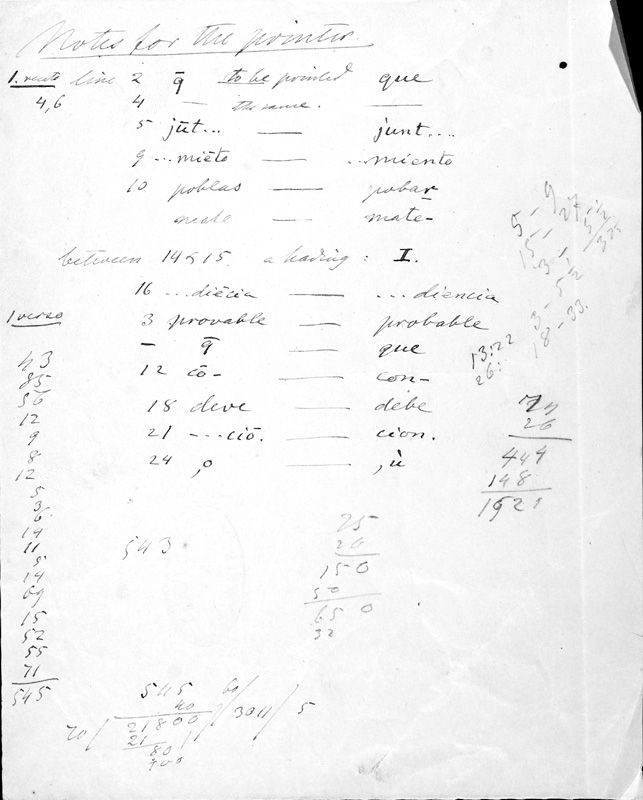 Notes for the printer.
1. recto line 2 q̄ to be printed que
4,6 4 — the same. —
5 jūt... — junt....
9 ...miēto — ...miento
10 poblas — pobar
mate — matē-
between 14 & 15. a heading: I.
16 ...diēcia — ...diencia
1 verso
3 provable — probable
– q̄ — que
12 cō- — con-
18 deve — debe
21 ...ciō. — cion.
24 ,o — ,ù
43
85
56
12
9
8
12
5
36
14
11
5
14
69
15
52
55
71
545
543
13:22
26:
26
444
148
25
26
150
50
650
32
545
40
21800
21
80
70
5